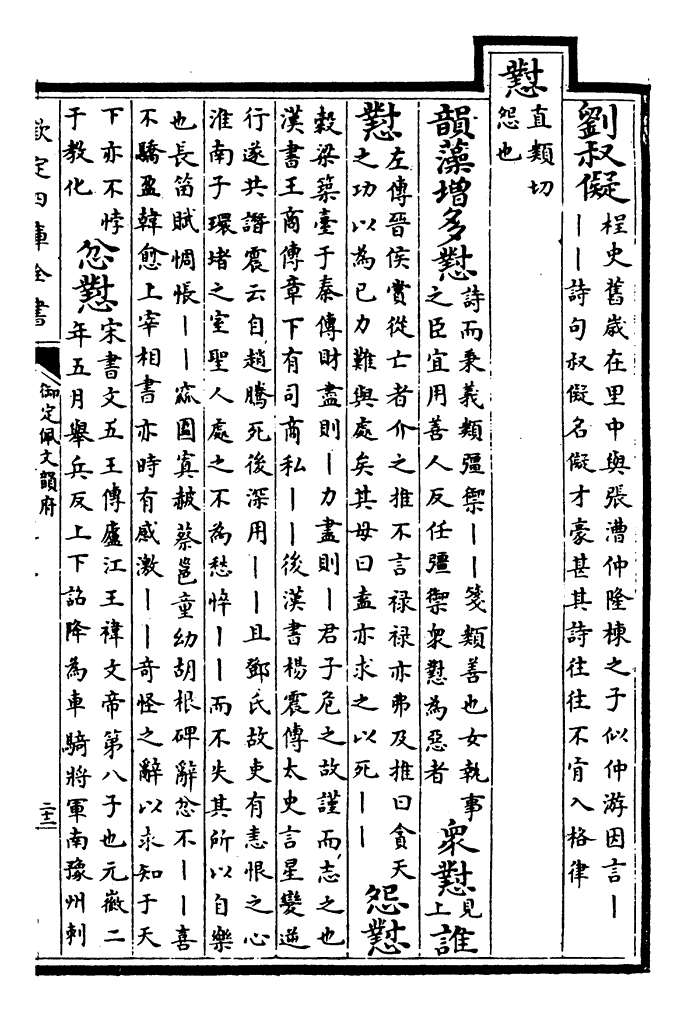 劉叔儗
桯史舊歲在里中與張漕仲隆棟之子似仲游因言丨
丨丨詩句叔儗名儗才豪甚其詩往往不肯入格律
懟
直類切
怨也
韻藻增多懟
詩而秉義類彊禦丨丨箋類善也女執事
之臣宜用善人反任彊禦衆懟為惡者
衆懟
見
上
誰
懟
左傳晉侯賞從亡者介之推不言禄禄亦弗及推曰貪天
之功以為已力難與處矣其母曰盍亦求之以死丨丨
怨懟
穀梁築臺于秦傳財盡則丨力盡則丨君子危之故謹而志之也
漢書王商傳章下有司商私丨丨後漢書楊震傳太史言星變逆
行遂共譖震云自趙騰死後深用丨丨且鄧氏故吏有恚恨之心
淮南子環堵之室聖人處之不為愁悴丨丨而不失其所以自樂
也長笛賦惆悵丨丨窳圔窴赧蔡邕童幼胡根碑辭忿不丨丨喜
不驕盈韓愈上宰相書亦時有感激丨丨奇怪之辭以求知于天
下亦不悖
于教化
忿懟
宋書文五王傳廬江王褘文帝第八子也元徽二
年五月舉兵反上下詔降為車騎將軍南豫州刺
欽定四庫全書
御定佩文韻府
二十二